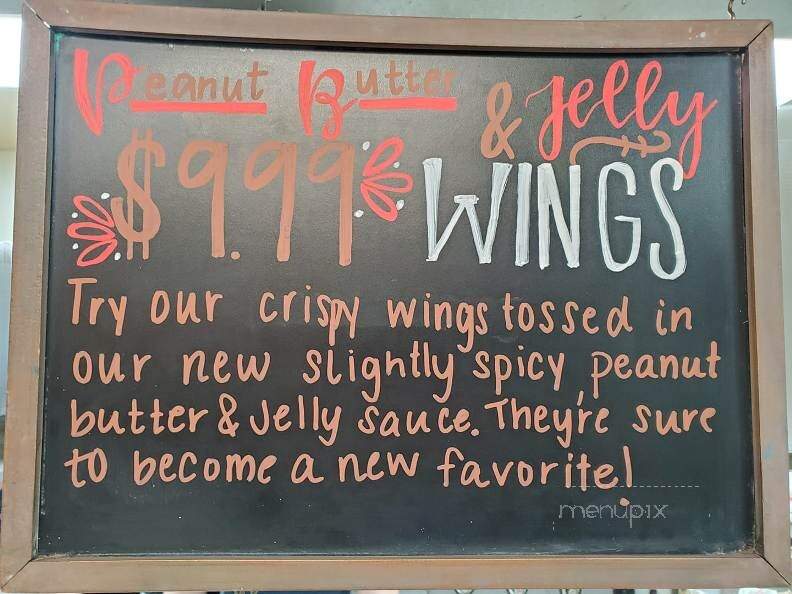 Peanut Butter & Jelly
$9.99 WINGS
Try our crispy wings tossed in
our new slightly spicy, peanut
butter & Jelly sauce. They're sure
to become a new favorite!
menupix